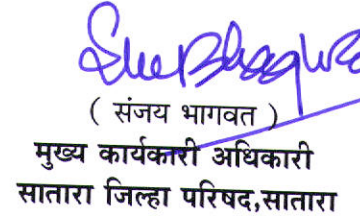 ( संजय भागवत )
मुख्य कार्यकारी अधिकारी
सातारा जिल्हा परिषद,सातारा